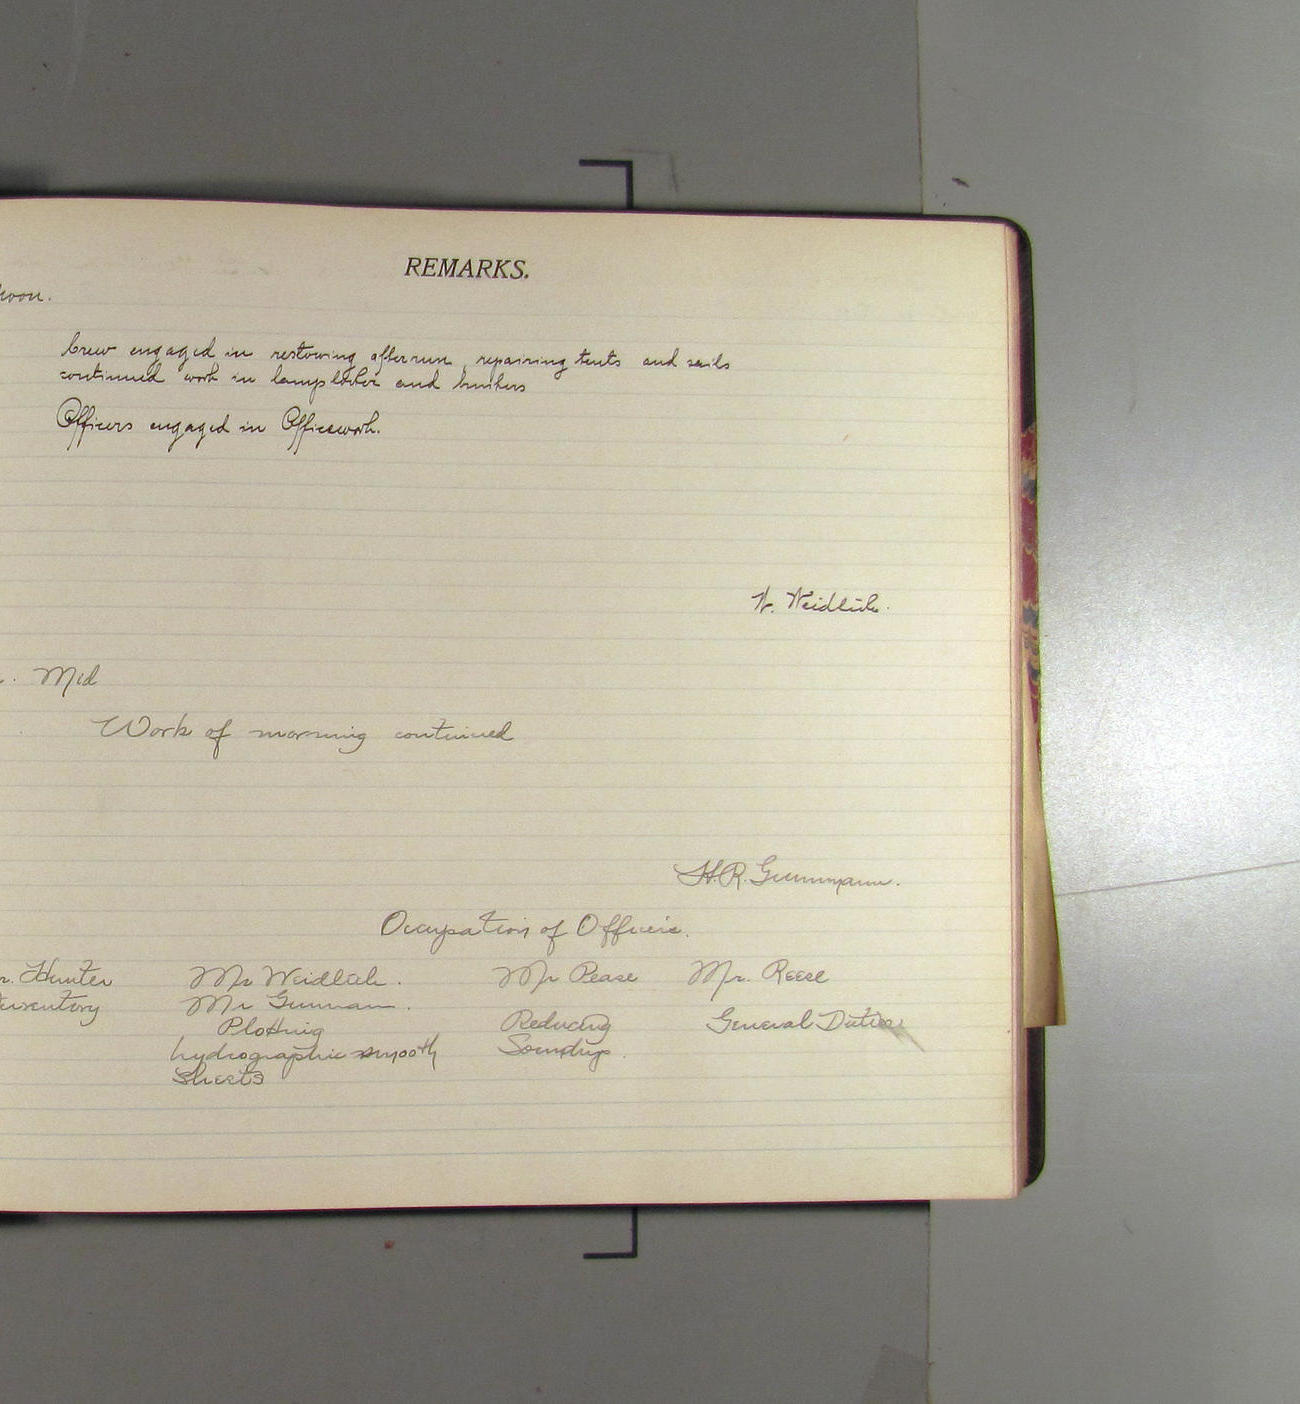 REMARKS.
noon.
Crew engaged in restowing afterrun, repairing tents and sails
continued work in lamplocker and bunkers
Officers engaged in Officework.
W. Weidlich.
Mid
Work of morning continued
H.R. Gummann.
Occupation of Officers.
Mr. Hunter Mr Weidlich. Mr Pease Mr. Reese
Inventory Mr Gumman.
Plotting Reducing General Duties
hydrographic smooth Soundings.
Sheets